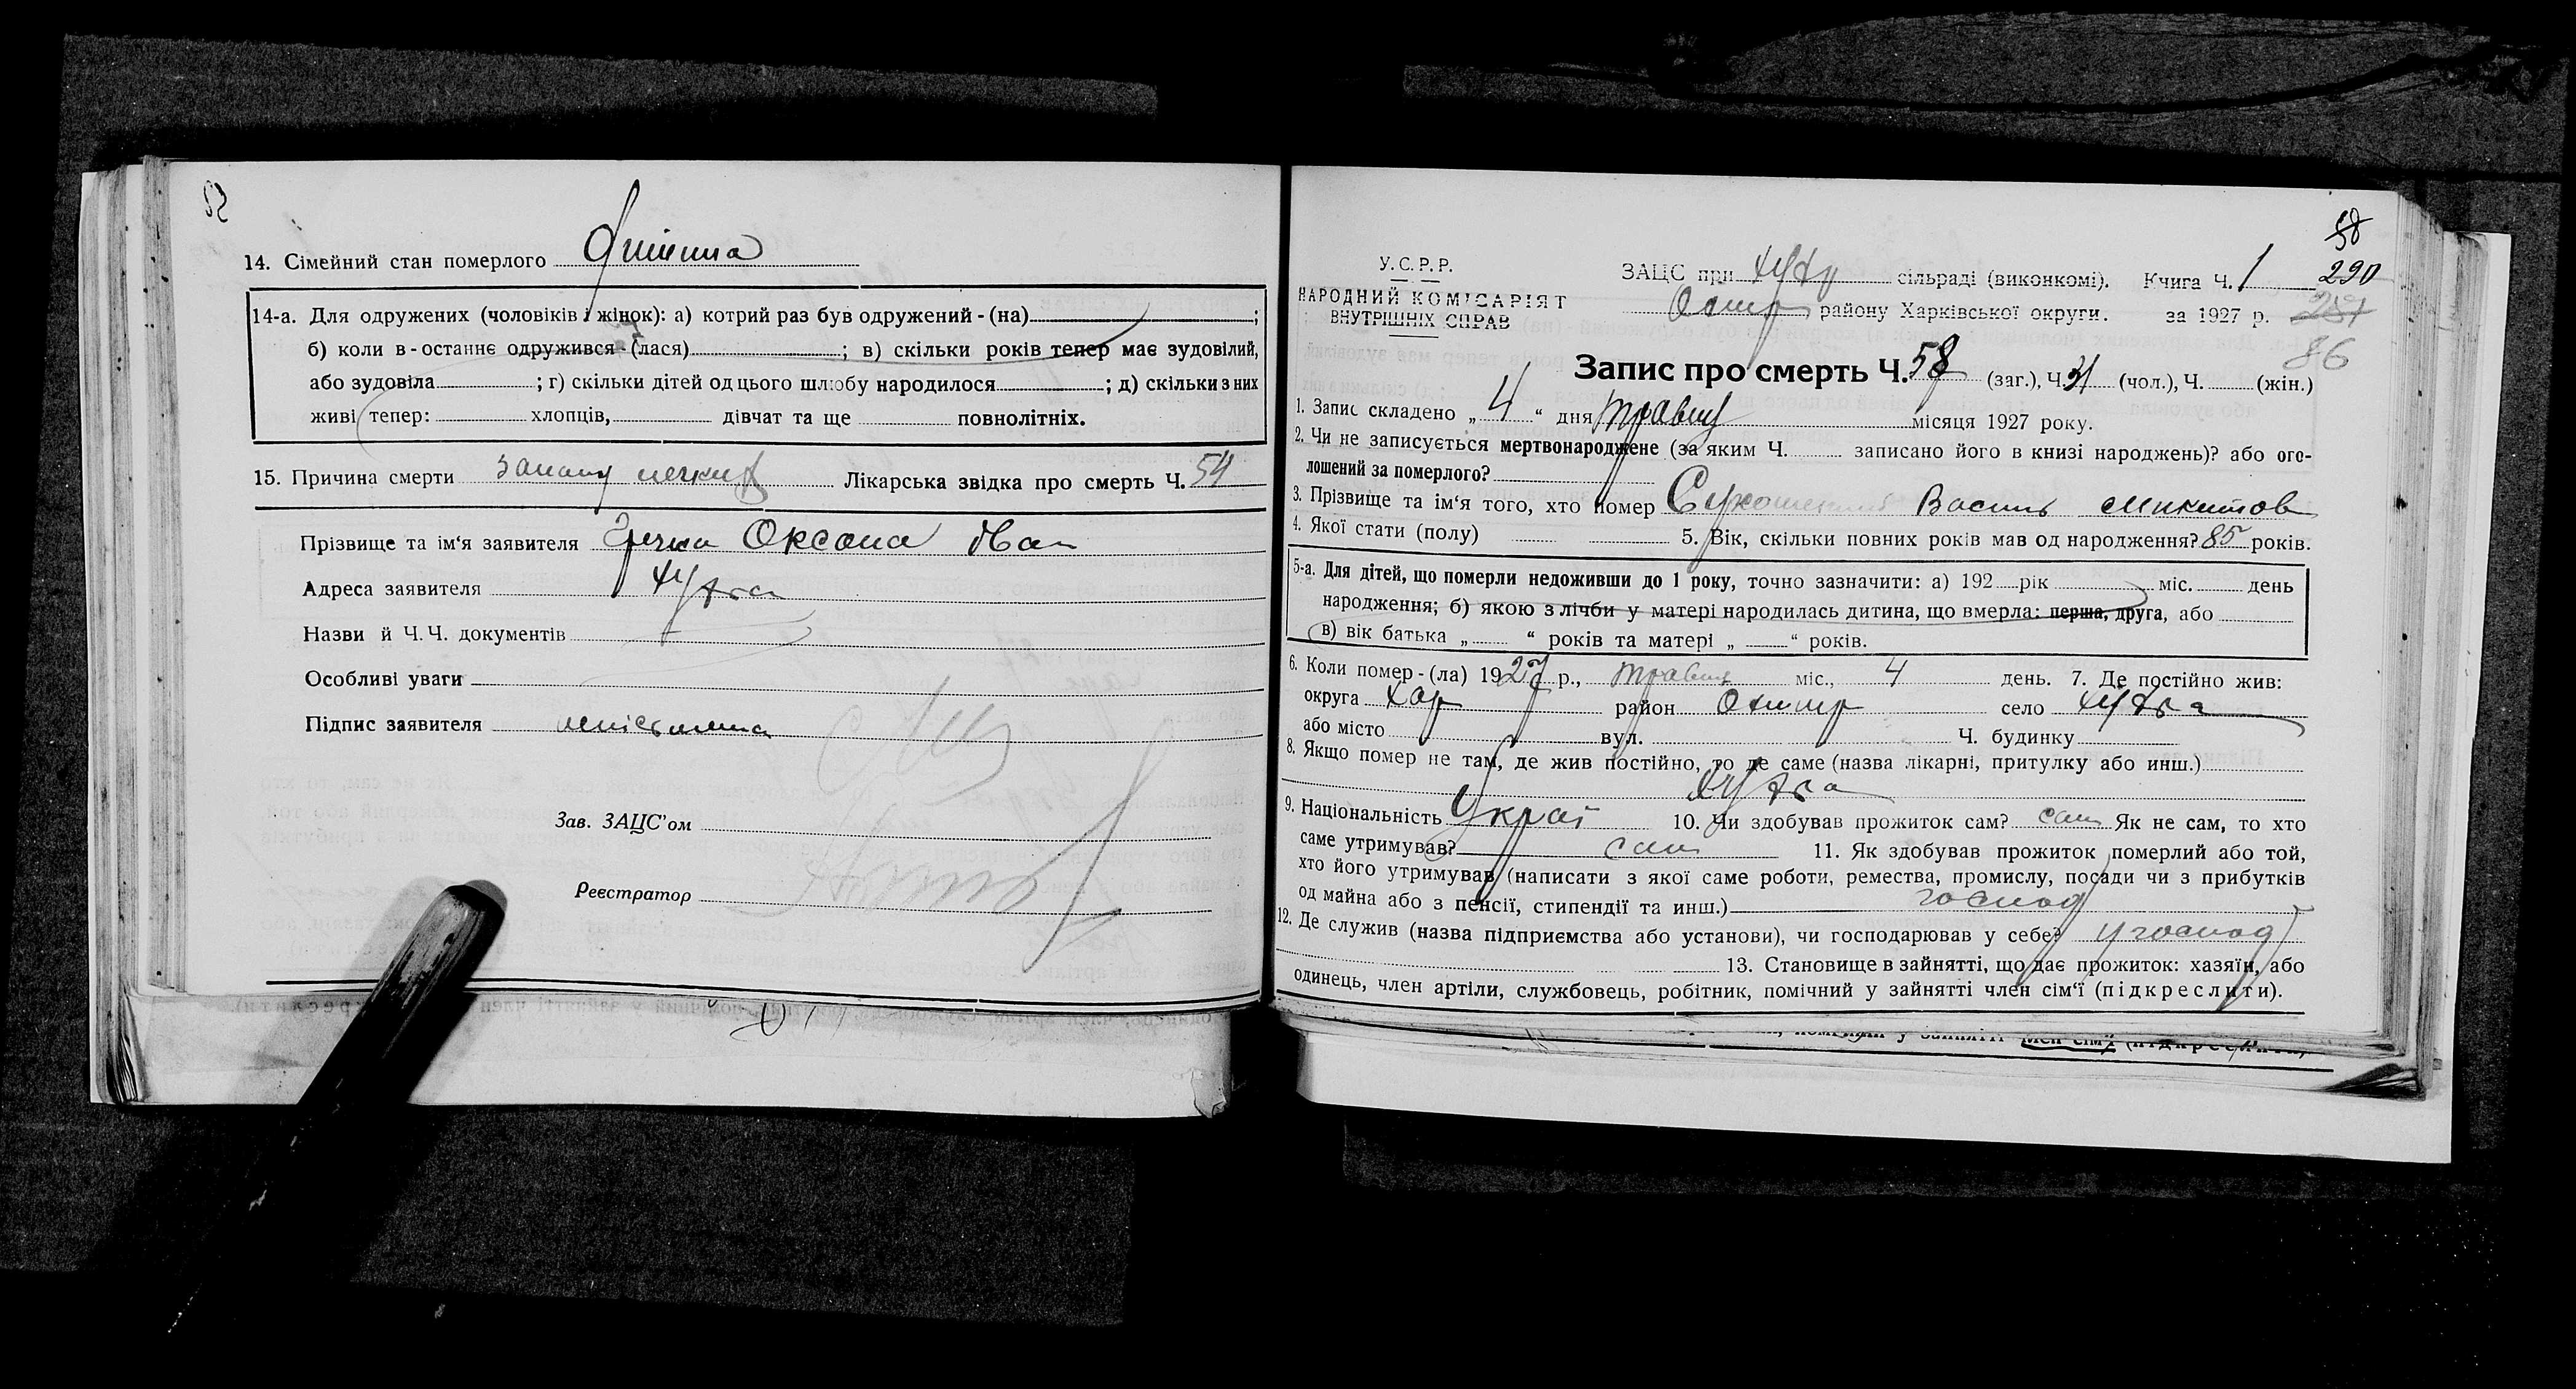 14. Сімейний стан померлого
14-а. Для одружених (чоловіків і жінок): а) котрий раз був одружений - (на) ;
б) коли в-останнє одружився - (лася) ; в) скільки років тепер має зудовілий,
або зудовіла ; г) скільки дітей од цього шлюбу народилося ; д) скільки з них
живі тепер: хлопців, дівчат та ще повнолітніх.
15. Причина смерти Лікарська звідка про смерть Ч. 54
Прізвище та ім'я заявителя Оксана Іван
Адреса заявителя
Назви й Ч.Ч. документів
Особливі уваги
Підпис заявителя
Зав. ЗАЦС'ом
Реєстратор
58
290
У.С.Р.Р.
НАРОДНИЙ КОМІСАРІЯТ
ВНУТРІШНІХ СПРАВ
ЗАЦС при сільраді (виконкомі). Книга Ч. 1
району Харківської округи. за 1927 р.
86
Запис про смерть Ч. 58 (заг.), Ч. 31 (чол.), Ч. (жін.)
1. Запис складено „ 4 “ дня травня місяця 1927 року.
2. Чи не записується мертвонароджене (за яким Ч. записано його в книзі народжень)? або ого-
лошений за померлого?
3. Прізвище та ім'я того, хто помер Василь Микитов
4. Якої стати (полу) 5. Вік, скільки повних років мав од народження? 85 років.
5-а. Для дітей, що померли недоживши до 1 року, точно зазначити: а) 192 рік міс. день
народження; б) якою з лічби у матері народилась дитина, що вмерла: перша, друга, або
в) вік батька „ “ років та матері „ “ років.
6. Коли помер - (ла) 1927 р., травня міс., 4 день. 7. Де постійно жив:
округа Хар район Охтир село
або місто вул. Ч. будинку
8. Якщо помер не там, де жив постійно, то де саме (назва лікарні, притулку або инш.)
9. Національність Украї 10. Чи здобував прожиток сам? сам Як не сам, то хто
саме утримував? сам 11. Як здобував прожиток померлий або той,
хто його утримував (написати з якої саме роботи, ремества, промислу, посади чи з прибутків
од майна або з пенсії, стипендії та инш.) господ
12. Де служив (назва підприємства або установи), чи господарював у себе? у господ
13. Становище в зайнятті, що дає прожиток: хазяїн, або
одинець, член артіли, службовець, робітник, помічний у зайнятті член сім'ї (підкреслити).